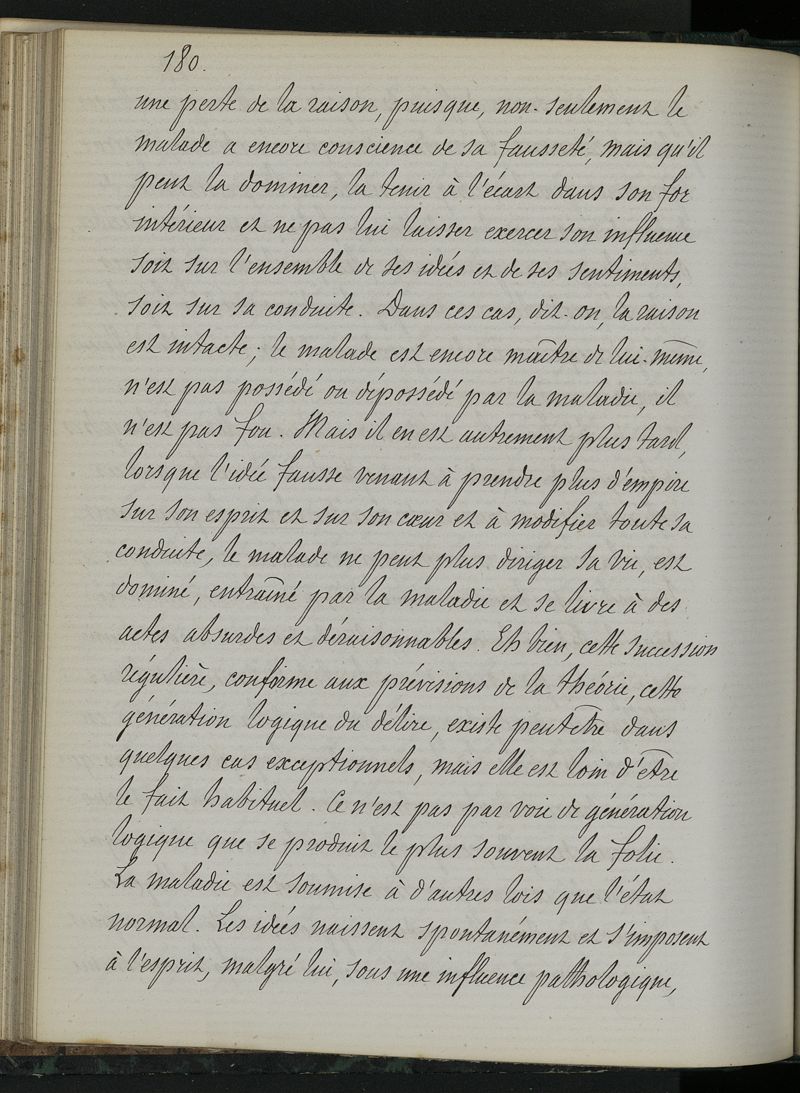 180.
une perte de la raison, puisque, non-seulement le
malade a encore conscience de sa fausseté, mais qu'il
peut la dominer, la tenir à l'écart dans son for
intérieur et ne pas lui laisser exercer son influence
soit sur l'ensemble de ses idées et de ses sentiments,
soit sur sa conduite. Dans ces cas, dit-on, la raison
est intacte; le malade est encore maître de lui-même,
n'est pas possédé ou dépossédé par la maladie, il
n'est pas fou. Mais il en est autrement plus tard,
lorsque l'idée fausse venant à prendre plus d'empire
sur son esprit et sur son cœur et à modifier toute sa
conduite, le malade ne peut plus diriger sa vie, est
dominé, entraîné par la maladie et se livre à des
actes absurdes et déraisonnables. Eh bien, cette succession
régulière, conforme aux prévisions de la théorie, cette
génération logique du délire, existe peut être dans
quelques cas exceptionnels, mais elle est loin d'être
le fait habituel. Ce n'est pas par voie de génération
logique que se produit le plus souvent la folie.
La maladie est soumise à d'autres lois que l'état
normal. Les idées naissent spontanément et s'imposent
à l'esprit, malgré lui, sous une influence pathologique,